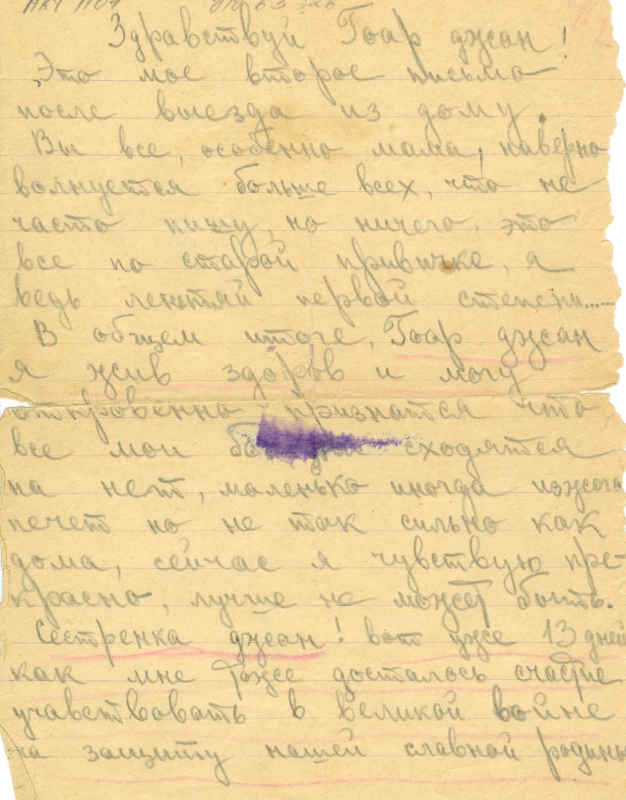 Здравствуй Гоар джан!
Это мое второе письмо
после выезда из дому.
Вы все, особенно мама, наверно
волнуется больше всех, что не
часто пишу, но ничего, это
все по старой привичке, я
ведь лентяй первой степени......
В общем итоге, Гоар джан
я жив здоров и могу
откровенно признатся что
все мои сходятся
на нет, маленько иногда изжога
печет но не так сильно как
дома, сейчас я чувствую пре-
красно, лучше не может быть.
Сестренка джан! вот уже 13 дней
как мне тоже досталось счастие
учавствовать в великой войне
на защиту нашей славной родины